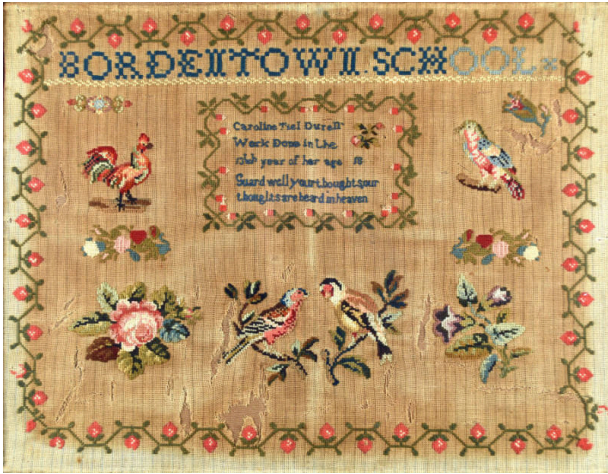 BORDENTOWN SCHOOL
Caroline Tiel Durell
Work Done in the
year of her age
Guard well your thoughts our
thoughts are heard in heaven